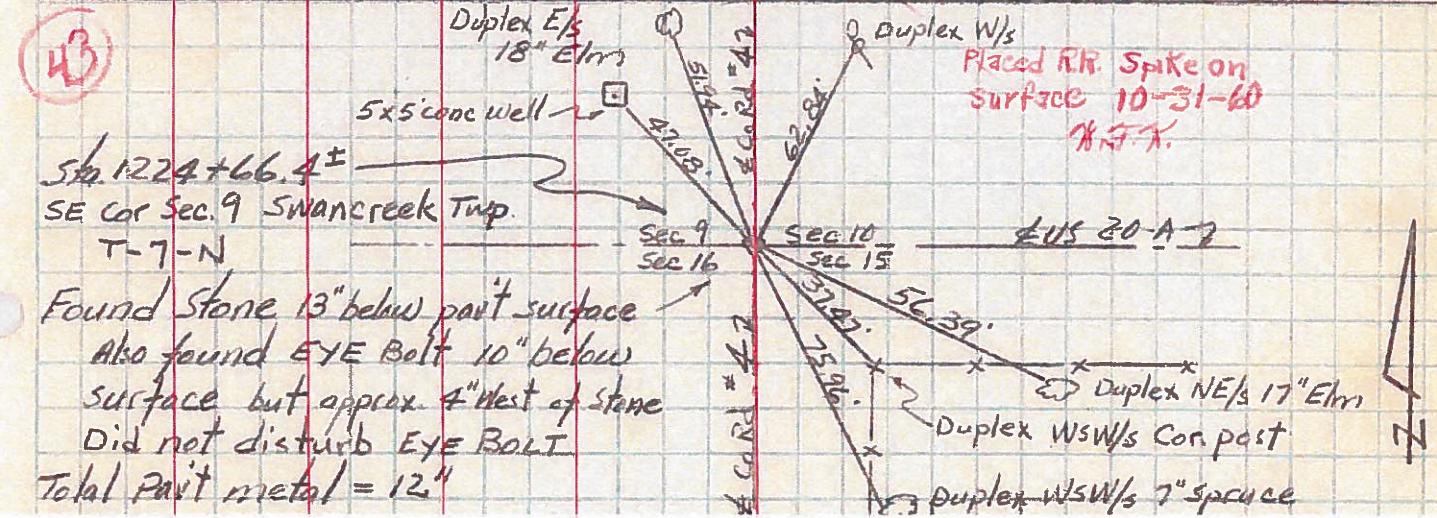 43
Duplex E/s
18" Elm
Duplex W/s
Placed R.R. Spike on
surface 10-31-60
5x5' conc well
51.94'
℄ Co Rd #42
62.84'
47.08'
Sta. 1224+66.4±
SE cor Sec. 9 Swancreek Twp.
T-7-N
Sec 9
Sec 10
℄ US 20-A-2
Sec 16
Sec 15
Found Stone 13" below pav't surface
Also found EYE Bolt 10" below
surface but approx. 4" West of Stone
Did not disturb EYE BOLT
Total Pav't metal = 12"
37.47'
56.39'
75.96'
℄ Co Rd #42
Duplex NE/s 17" Elm
Duplex WSW/s Cor. post
Duplex WSW/s 7" Spruce
N